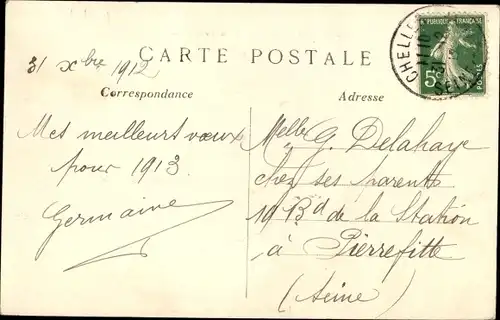 31 Xbre 1912
CARTE POSTALE
Correspondance
Adresse
Mes meilleurs vœux
pour 1913
Germaine
Melle G. Delahaye
chez ses parents
19 Bd de la Station
à Pierrefitte
(Seine)
REPUBLIQUE FRANÇAISE
5c
POSTES
CHELLE
SEIN